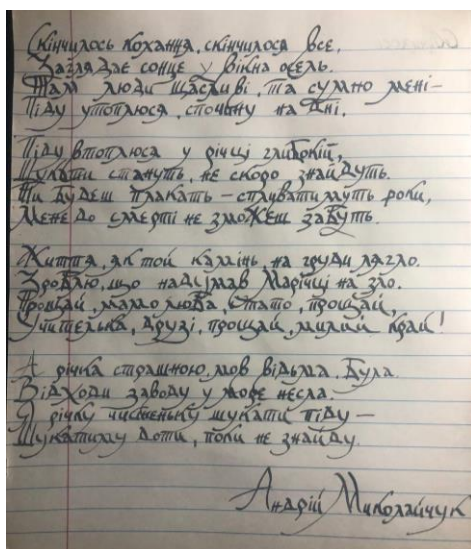 Скінчилось кохання, скінчилося все.
Заглядає сонце у вікна осель.
Там люди щасливі, та сумно мені-
Піду утоплюся, спочину на дні.
Піду втоплюся у річці глибокій,
Шукати стануть, не скоро знайдуть.
Ти будеш плакать - спливатимуть роки,
Мене до смерті не зможеш забуть.
Життя, як той камінь, на груди лягло.
Зроблю, що надумав Марічці на зло.
Прощай, мамо люба, і тато, прощай,
Учителька, друзі, прощай, милий край!
А річка страшною, мов відьма, була.
Відходи заводу у море несла.
Я річку чистеньку шукати піду -
Шукатиму доти, поки не знайду.
Андрій Миколайчук